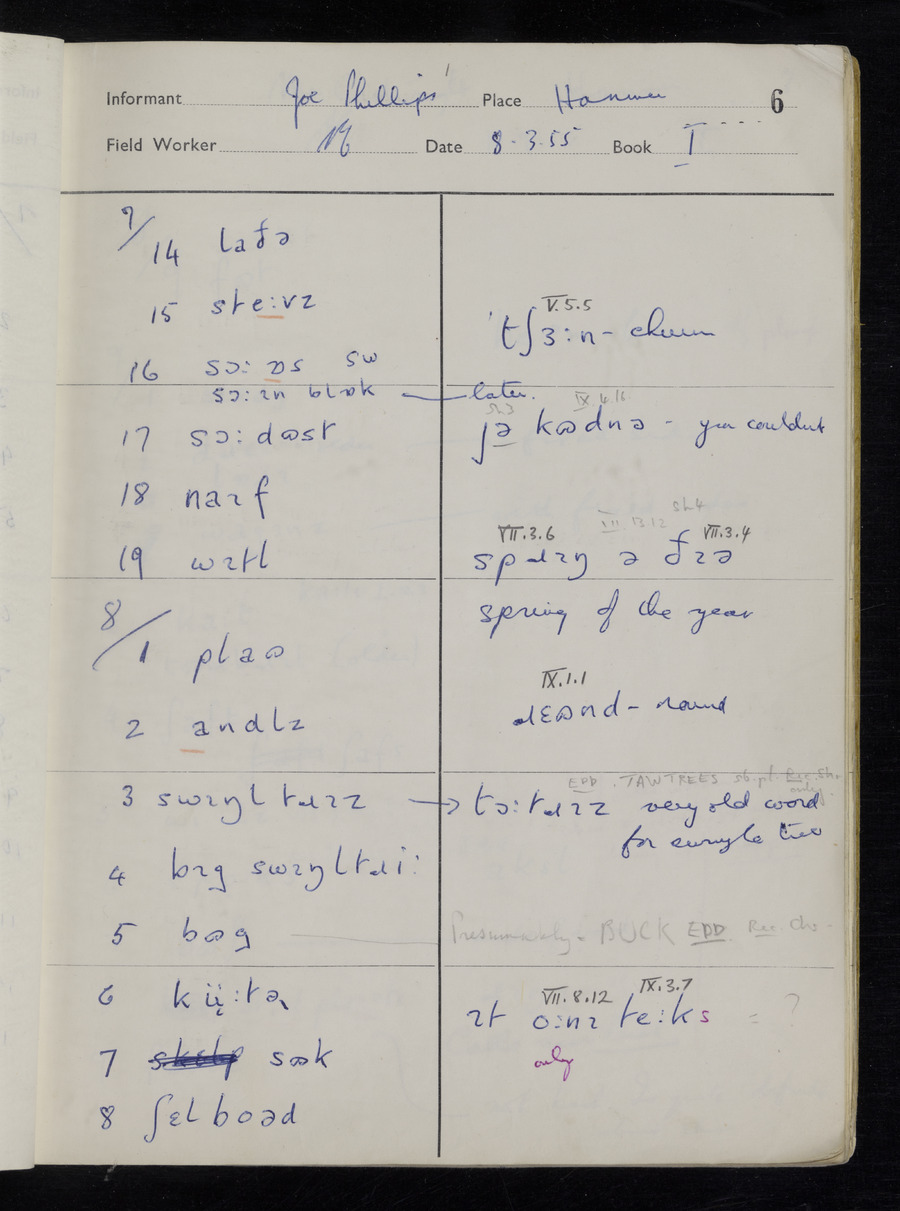 Informant Joe Phillips Place Hanmer 6
Field Worker Date 8.3.55 Book I
7/14 ladə
15 ste:vz
16 sɔ: ɒs sw
sɔ:ɪn blɒk — later.
17 sɔ:dʊst
18 naɪf
19 wɪtl
8/1 plaʊ
2 andlz
3 swɪŋltɹɪz
4 bɪg swɪŋltɹi:
5 bʊg
6
7 sʊk
8 ʃɛlbʊəd
V.5.5
'tʃɜ:n - churn
IX.4.16
jə kʊdnə - you couldn't
VII.3.6 VII.13.12 sh4 VII.3.4
spɹɪŋ ə ðɪə
spring of the year
IX.1.1
ɹɛʊnd - round
EDD. TAWTREES sb.pl. Rec. Sh. only
→ tɔ:tɹɪz very old word
for swingle tree
Presumably = BUCK EDD Rec. Chs.
VII.8.12 IX.3.7
ɪt o:nɪ te:ks = ?
only